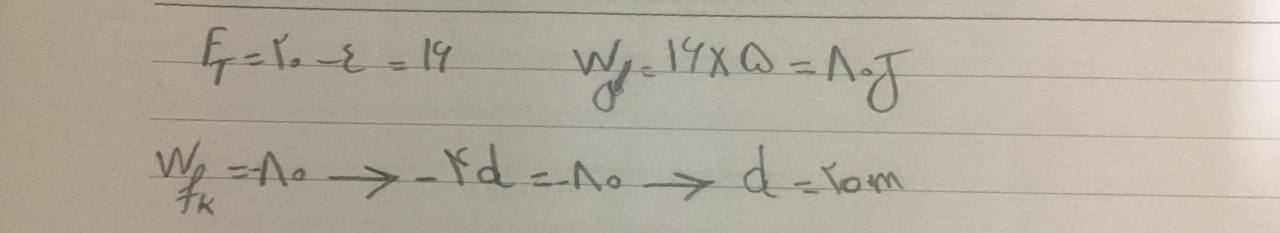 F_T = ۲۰ - ٤ = ۱۶ W = ۱۶ × ۵ = ۸۰ J
W_fk = -۸۰ → -۴d = -۸۰ → d = ۲۰m